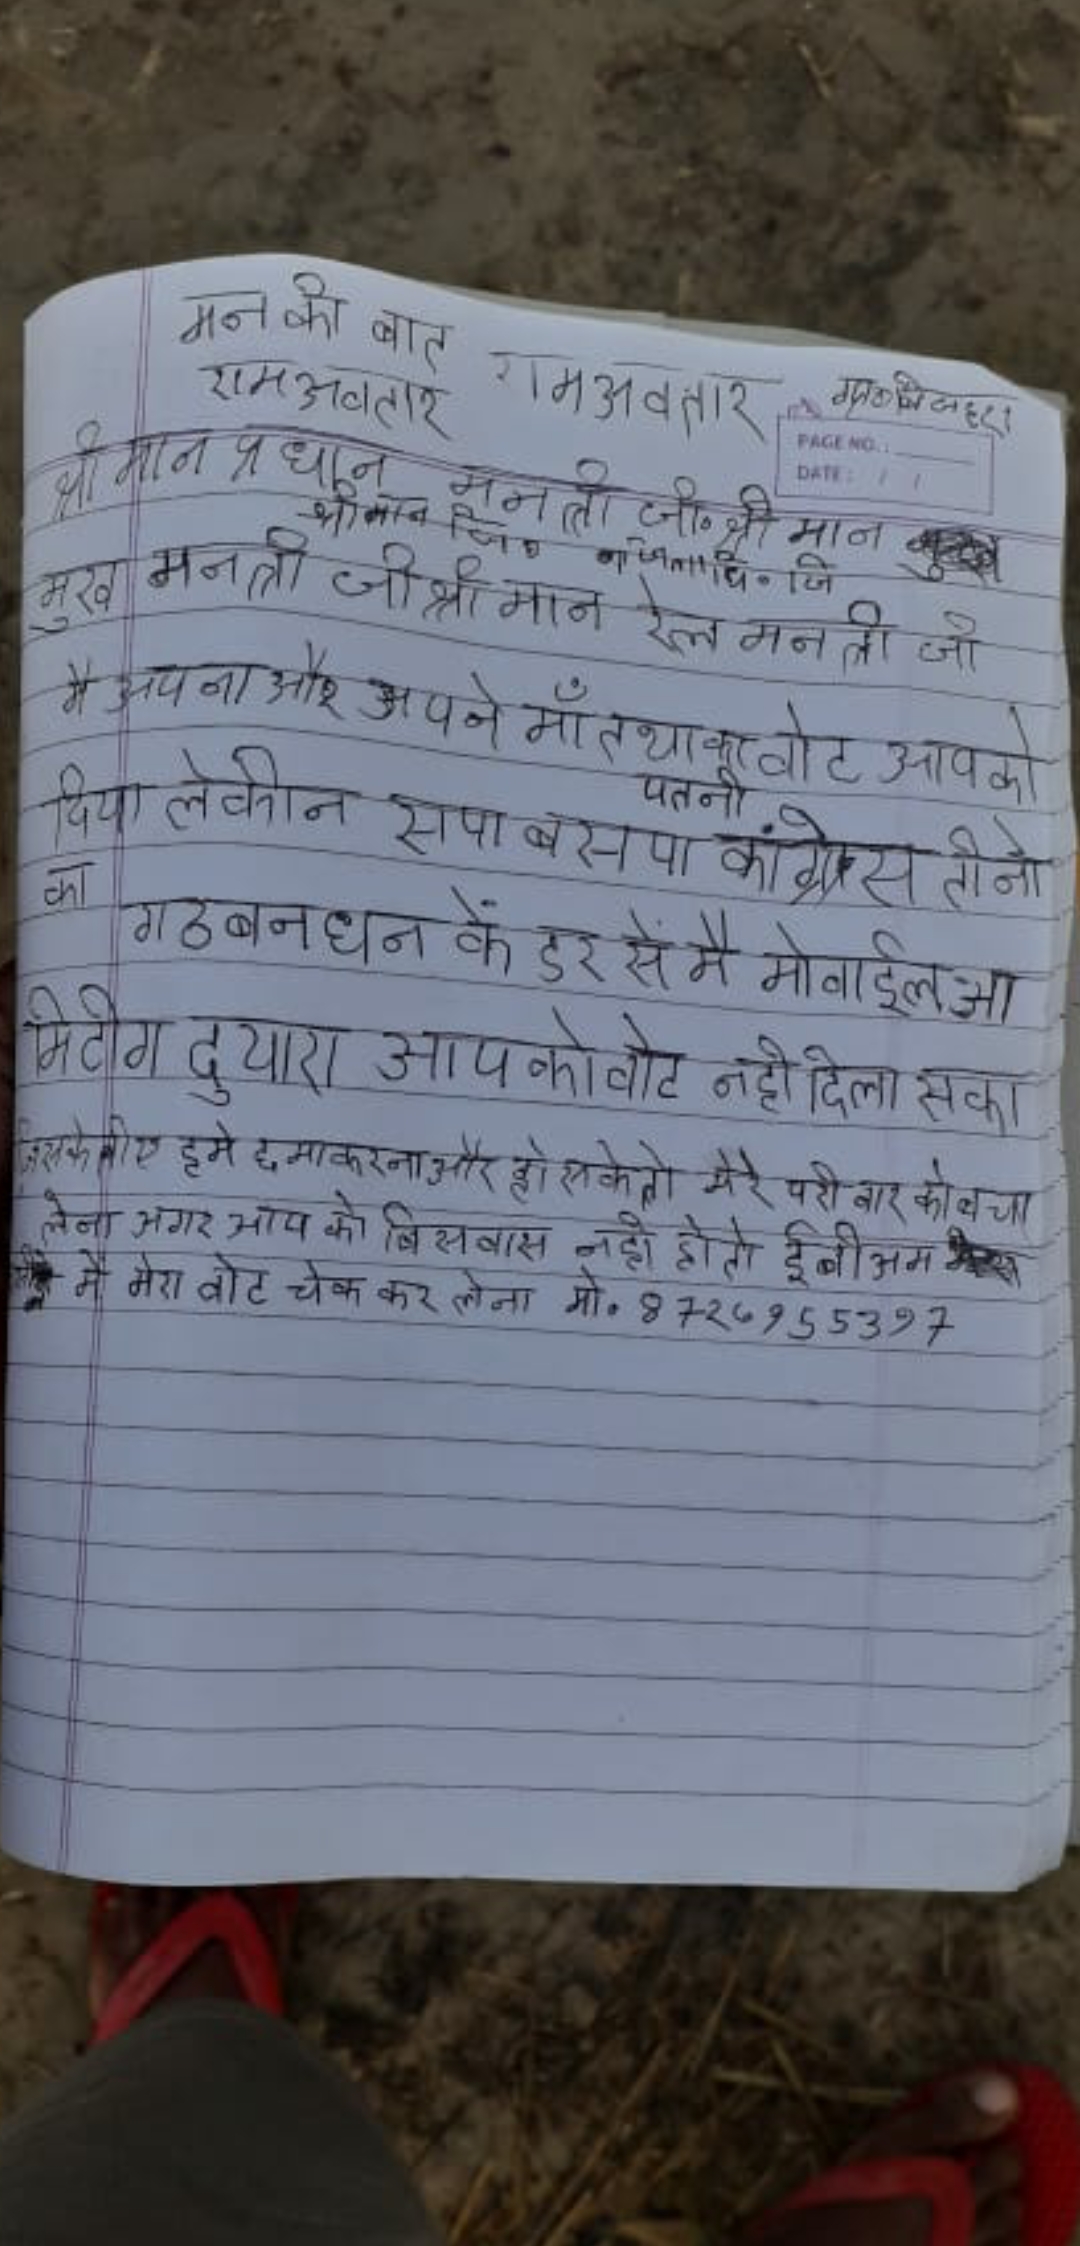 मन की बात
रामअवतार रामअवतार
PAGE NO.:
DATE: / /
श्री मान प्रधान मनत्री जी॰ श्री मान
श्रीमान जि॰
मुख मनत्री जी श्री मान रेल मनत्री जी
मै अपना और अपने माँ तथा का वोट आपको
पतनी
दिया लेकीन सपा बसपा कांग्रेस तीनो
का
गठबनधन कें डर सें मै मोवाईल आ
मिटींग दुयारा आपको वोट नही दिला सका
जिसके लीए हमे छमा करना और हो सके तो मेरे परीवार को बचा
लेना अगर आप को बिसवास नही हो तो ईबीअम
मै मेरा वोट चेक कर लेना मो॰ 8726955397